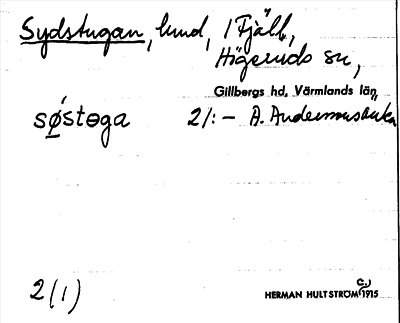 Sydstugan, lund, 1 Fjäll,
Högeruds sn,
Gillbergs hd, Värmlands län
søstɵga 2/:- A.
2(1)
HERMAN HULTSTRÖM C:a 1915